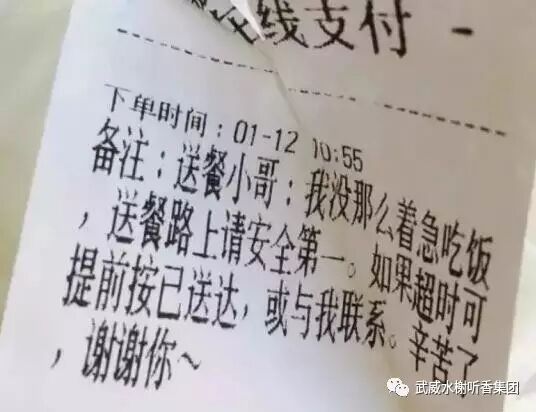 线支付 -
下单时间：01-12 10:55
备注：送餐小哥：我没那么着急吃饭
，送餐路上请安全第一。如果超时可
提前按已送达，或与我联系。辛苦了
，谢谢你～
武威水榭听香集团